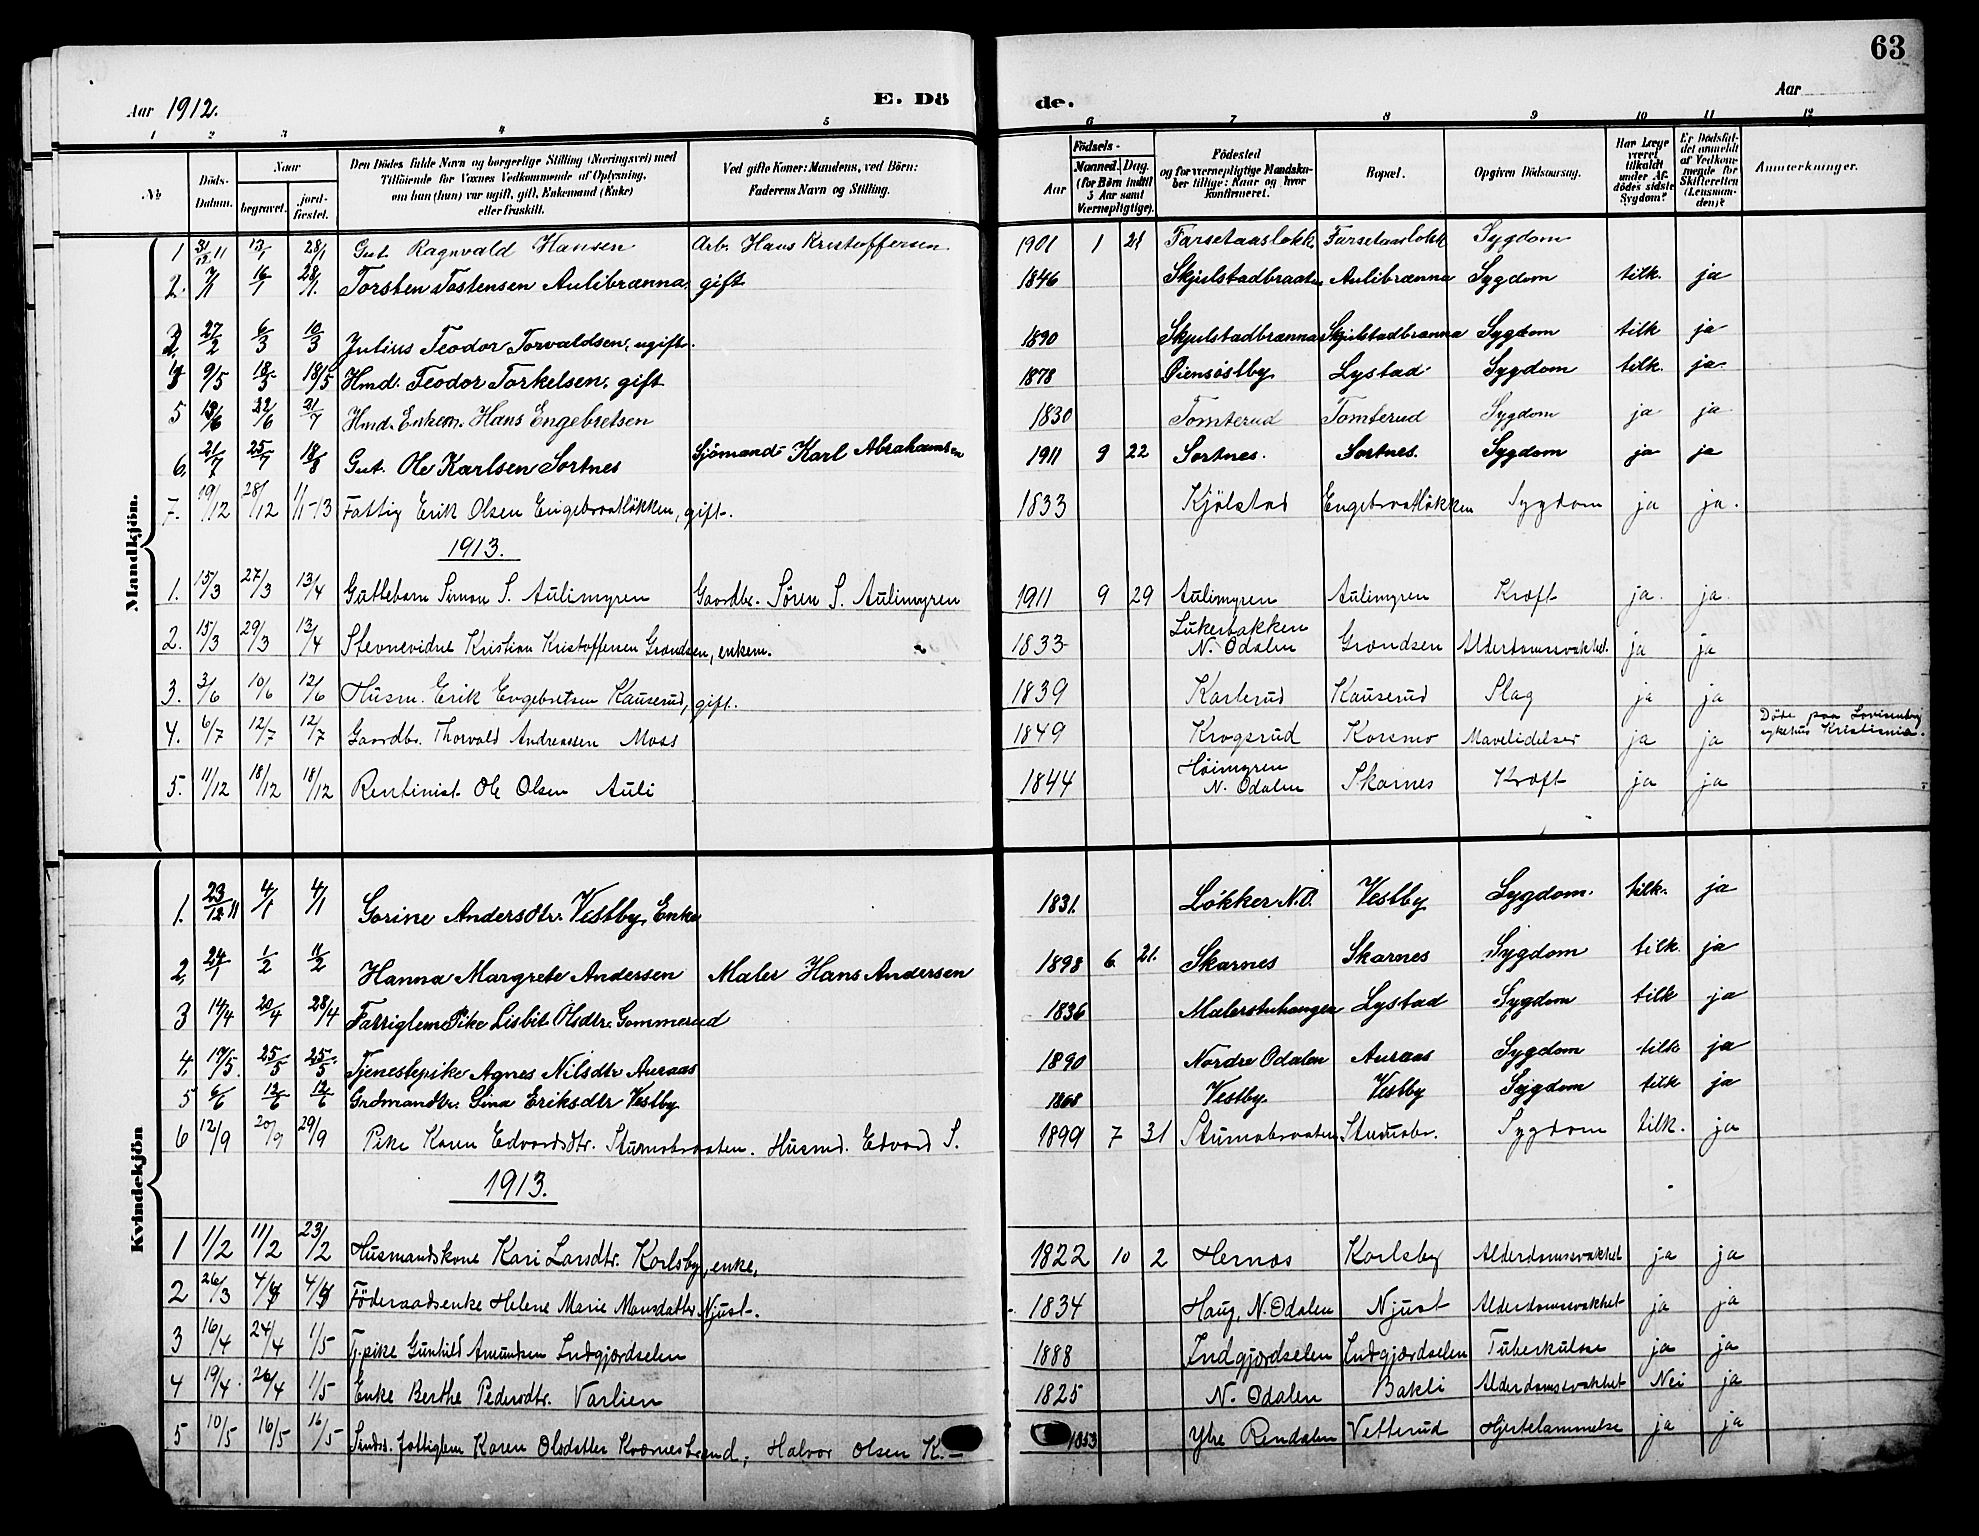 63
Aar 1912. E. Dö de. Aar
1 2 3 4 5 6 7 8 9 10 11 12
No. Döds-Datum. Naar begravet. jord-fæstet. Den Dödes fulde Navn og borgerlige Stilling (Næringsvei) med Tilföiende for Voxnes Vedkommende af Oplysning, om han (hun) var ugift, gift, Enkemand (Enke) eller fraskilt. Ved gifte Koner: Mandens, ved Börn: Faderens Navn og Stilling. Födsels- Aar Maaned. Dag. (for Börn indtil 5 Aar samt Værnepligtige). Födested og for værnepligtige Mandskaber tillige: Naar og hvor konfirmeret. Bopæl. Opgiven Dödsaarsag. Har Læge været tilkaldt under Afdödes sidste Sygdom? Er Dödsfaldet anmeldt af Vedkommende for Skifteretten (Lensmanden)? Anmerkninger.
Mandkjön.
1 31/12 11 13/1 28/1 Gut Ragnvald Hansen Arb. Hans Kristoffersen 1901 1 21 Farsetaaslokk Farsetaaslokk Sygdom
2. 7/1 16/1 28/1 Torsten Tostensen Aulibrænna, gift 1846 Skjulstadbraaten Aulibrænna Sygdom tilk. ja
3 27/2 6/3 10/3 Julius Teodor Torvaldsen, ugift. 1890 Skjulstadbrænna Skjulstadbrænna Sygdom tilk ja
4 9/5 18/5 18/5 Hmd. Teodor Torkelsen, gift 1878 Øiensöstby Lystad Sygdom tilk. ja
5 13/6 22/6 21/7 Hmd. Enkem. Hans Engebretsen 1830 Tomterud Tomterud Sygdom ja ja
6. 21/7 25/7 18/8 Gut. Ole Karlsen Sortnes Sjömand Karl Abrahamsen 1911 9 22 Sortnes. Sortnes. Sygdom ja ja
7. 19/12 28/12 1/1-13 Fattig Erik Olsen Engebraatløkken, gift. 1833 Kjölstad Engebraatløkken Sygdom ja ja.
1913.
1. 15/3 27/3 13/4 Guttebarn Simon S. Aulimyren Gaardbr. Søren S. Aulimyren 1911 9 29 Aulimyren Aulimyren Kræft ja. ja.
2. 15/3 29/3 13/4 Stevnevidne Kristian Kristoffersen Grandsen, enkem. 1833 Lukerbakken N. Odalen Grandsen Alderdomssvakhet. ja ja
3. 3/6 10/6 12/6 Husm. Erik Engebretsen Kauserud, gift. 1839 Karlerud Kauserud Slag ja ja
4. 6/7 12/7 12/7 Gaardbr. Thorvald Andreassen Moss 1849 Krogsrud Korsmo Mavelidelser ja ja Döde paa Lovisenberg sykehus Kristiania.
5. 11/12 18/12 18/12 Rentinist. Ole Olsen Auli 1844 Høimyren N. Odalen Skarnes Kræft ja ja
Kvindekjön
1. 23/12 11 4/1 4/1 Gorine Andersdtr. Vestby, Enke 1831. Løkker N.O. Vestby Sygdom. tilk. ja
2. 24/1 1/2 11/2 Hanna Margrete Andersen Maler Hans Andersen 1898 6 21. Skarnes Skarnes Sygdom tilk. ja
3 14/4 20/4 28/4 Fattiglem Pike Lisbit Olsdtr. Gommerud 1836 Malerstuhangen Lystad Sygdom tilk ja
4. 19/5. 25/5 25/5 Tjenestepike Agnes Nilsdtr Auraas 1890 Nordre Odalen Auraas Sygdom tilk ja
5 6/6 12/6 12/6 Grdmandtr. Gina Eriksdtr Vestby 1868 Vestby. Vestby Sygdom tilk ja
6 12/9 20/9 29/9 Pike Karen Edvardsdtr. Stumobraaten. Husmd. Edvard S. 1899 7 31 Stumobraaten Stumobr. Sygdom tilk. ja
1913.
1 1/2 11/2 23/2 Husmandskone Kari Larsdtr. Korlsby, enke, 1822 10 2 Hernas Korlsby Alderdomssvakhet ja ja
2 26/3 4/4 4/4 Föderaadsenke Helene Marie Monsdatter Njust. 1834 Haug, N. Odalen Njust Alderdomssvakhet ja ja
3 16/4 24/4 1/5 Tj.pike Gunhild Amundsen Indgjærdselen 1888 Indgjærdselen Indgjærdselen Tuberkulose ja ja
4 19/4. 26/4 1/5 Enke Berthe Pedersdtr. Varlien 1825 N. Odalen Bakli Alderdomssvakhet Nei ja
5 10/5 16/5 16/5 fattiglem Karen Olsdatter Kværnesbrænd, Halvor Olsen K. 1853 Ytre Rendalen Vetterud Hjertelammelse ja ja